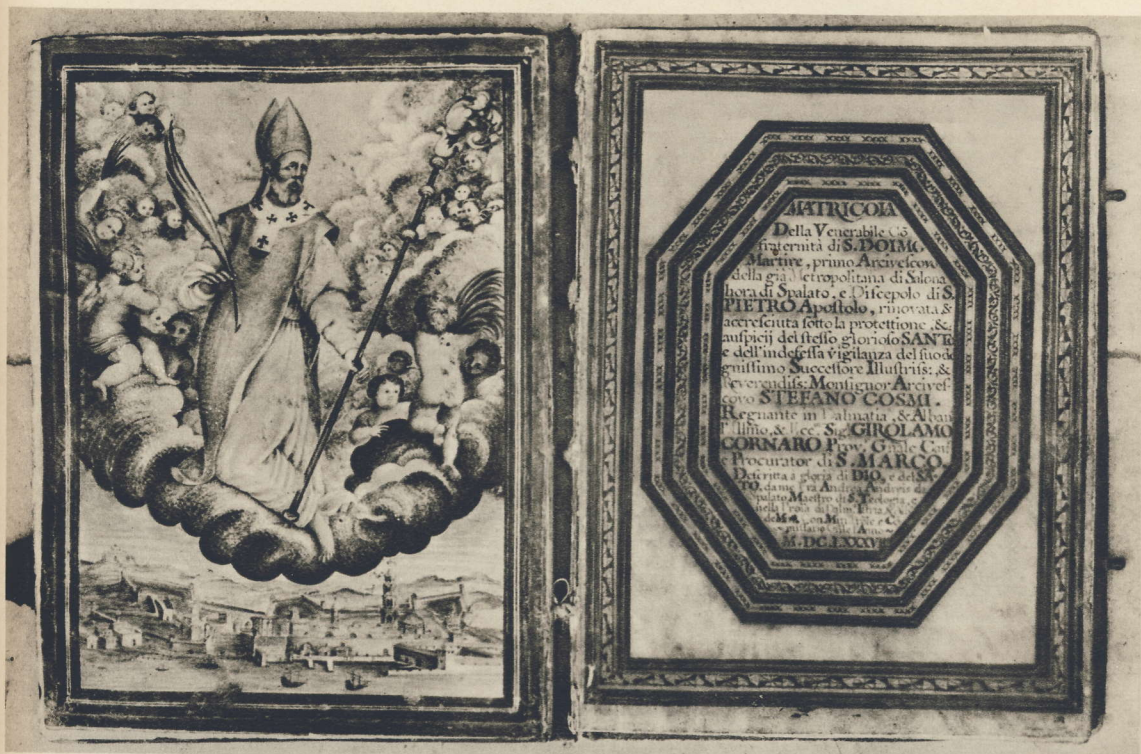 MATRICOLA
Della Venerabile Cõ
fraternità di S. DOIMO
Martire, primo Arcivescovo
della già Metropolitana di Salona
hora di Spalato, e Discepolo di S.
PIETRO Apostolo, rinovata &
accresciuta sotto la protettione, &
auspicij del stesso glorioso SANTO
e dell'indefessa vigilanza del suo de
gnissimo Successore Illustriss: &
Reverendiss: Monsignor Arcives
covo STEFANO COSMI.
Regnante in Dalmatia, & Alban
GIROLAMO
CORNARO Prov. Gñale
Procurator di S. MARCO.
Descritta a gloria di DIO, e del SA
TO, da me Fra Andrea
Spalato Maestro di S. Teologia, e
nella
M.DC.LXXXV